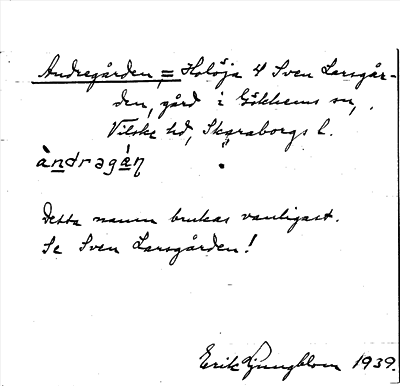 Andregården = Holöja 4 Sven Larsgår-
den, gård i Gökhems sn,
Vilske hd, Skaraborgs l.
àndragáɳ
Detta namn brukas vanligast.
Se Sven Larsgården!
Erik Ljungblom 1939.